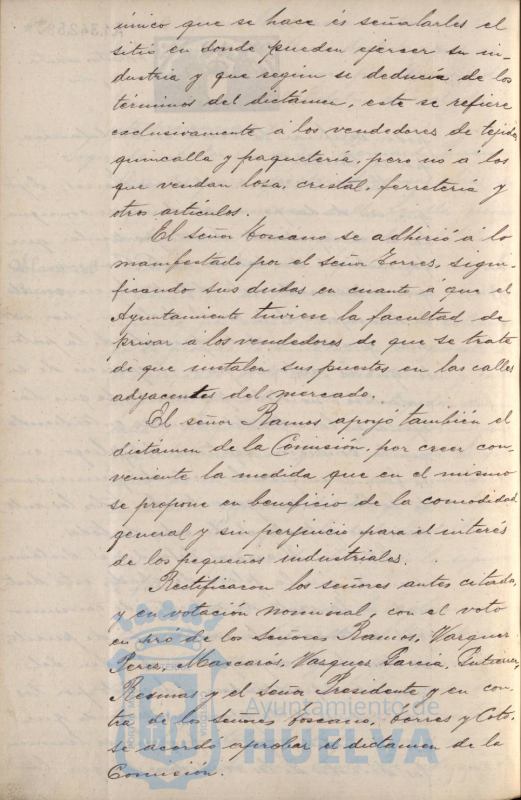 único que se hace és señalarles el
sitio en donde pueden ejercer su in-
dustria y que según se deducía de los
términos del dictámen, este se refiere
exclusivamente á los vendedores de tejidos
quincalla y paquetería, pero nó á los
que vendan loza, cristal, ferretería y
otros artículos.
El señor Toscano se adhirió á lo
manifestado por el señor Torres, signi-
ficando sus dudas en cuanto á que el
Ayuntamiento tuviese la facultad de
privar á los vendedores de que se trata
de que instalen sus puestos en las calles
adyacentes del mercado.
El señor Ramos apoyó también el
dictámen de la Comisión, por creer con-
veniente la medida que en el mismo
se propone en beneficio de la comodidad
general y sin perjuicio para el interés
de los pequeños industriales.
Rectificaron los señores antes citados,
y en votación nominal, con el voto
en pró de los Señores Ramos, Vazquez
Perez, Mascarós, Vazquez Garcia, Gutierrez,
y el Señor Presidente y en con-
tra de los Señores Toscano, Torres y Coto,
se acordó aprobar el dictamen de la
Comisión.
Ayuntamiento de
HUELVA